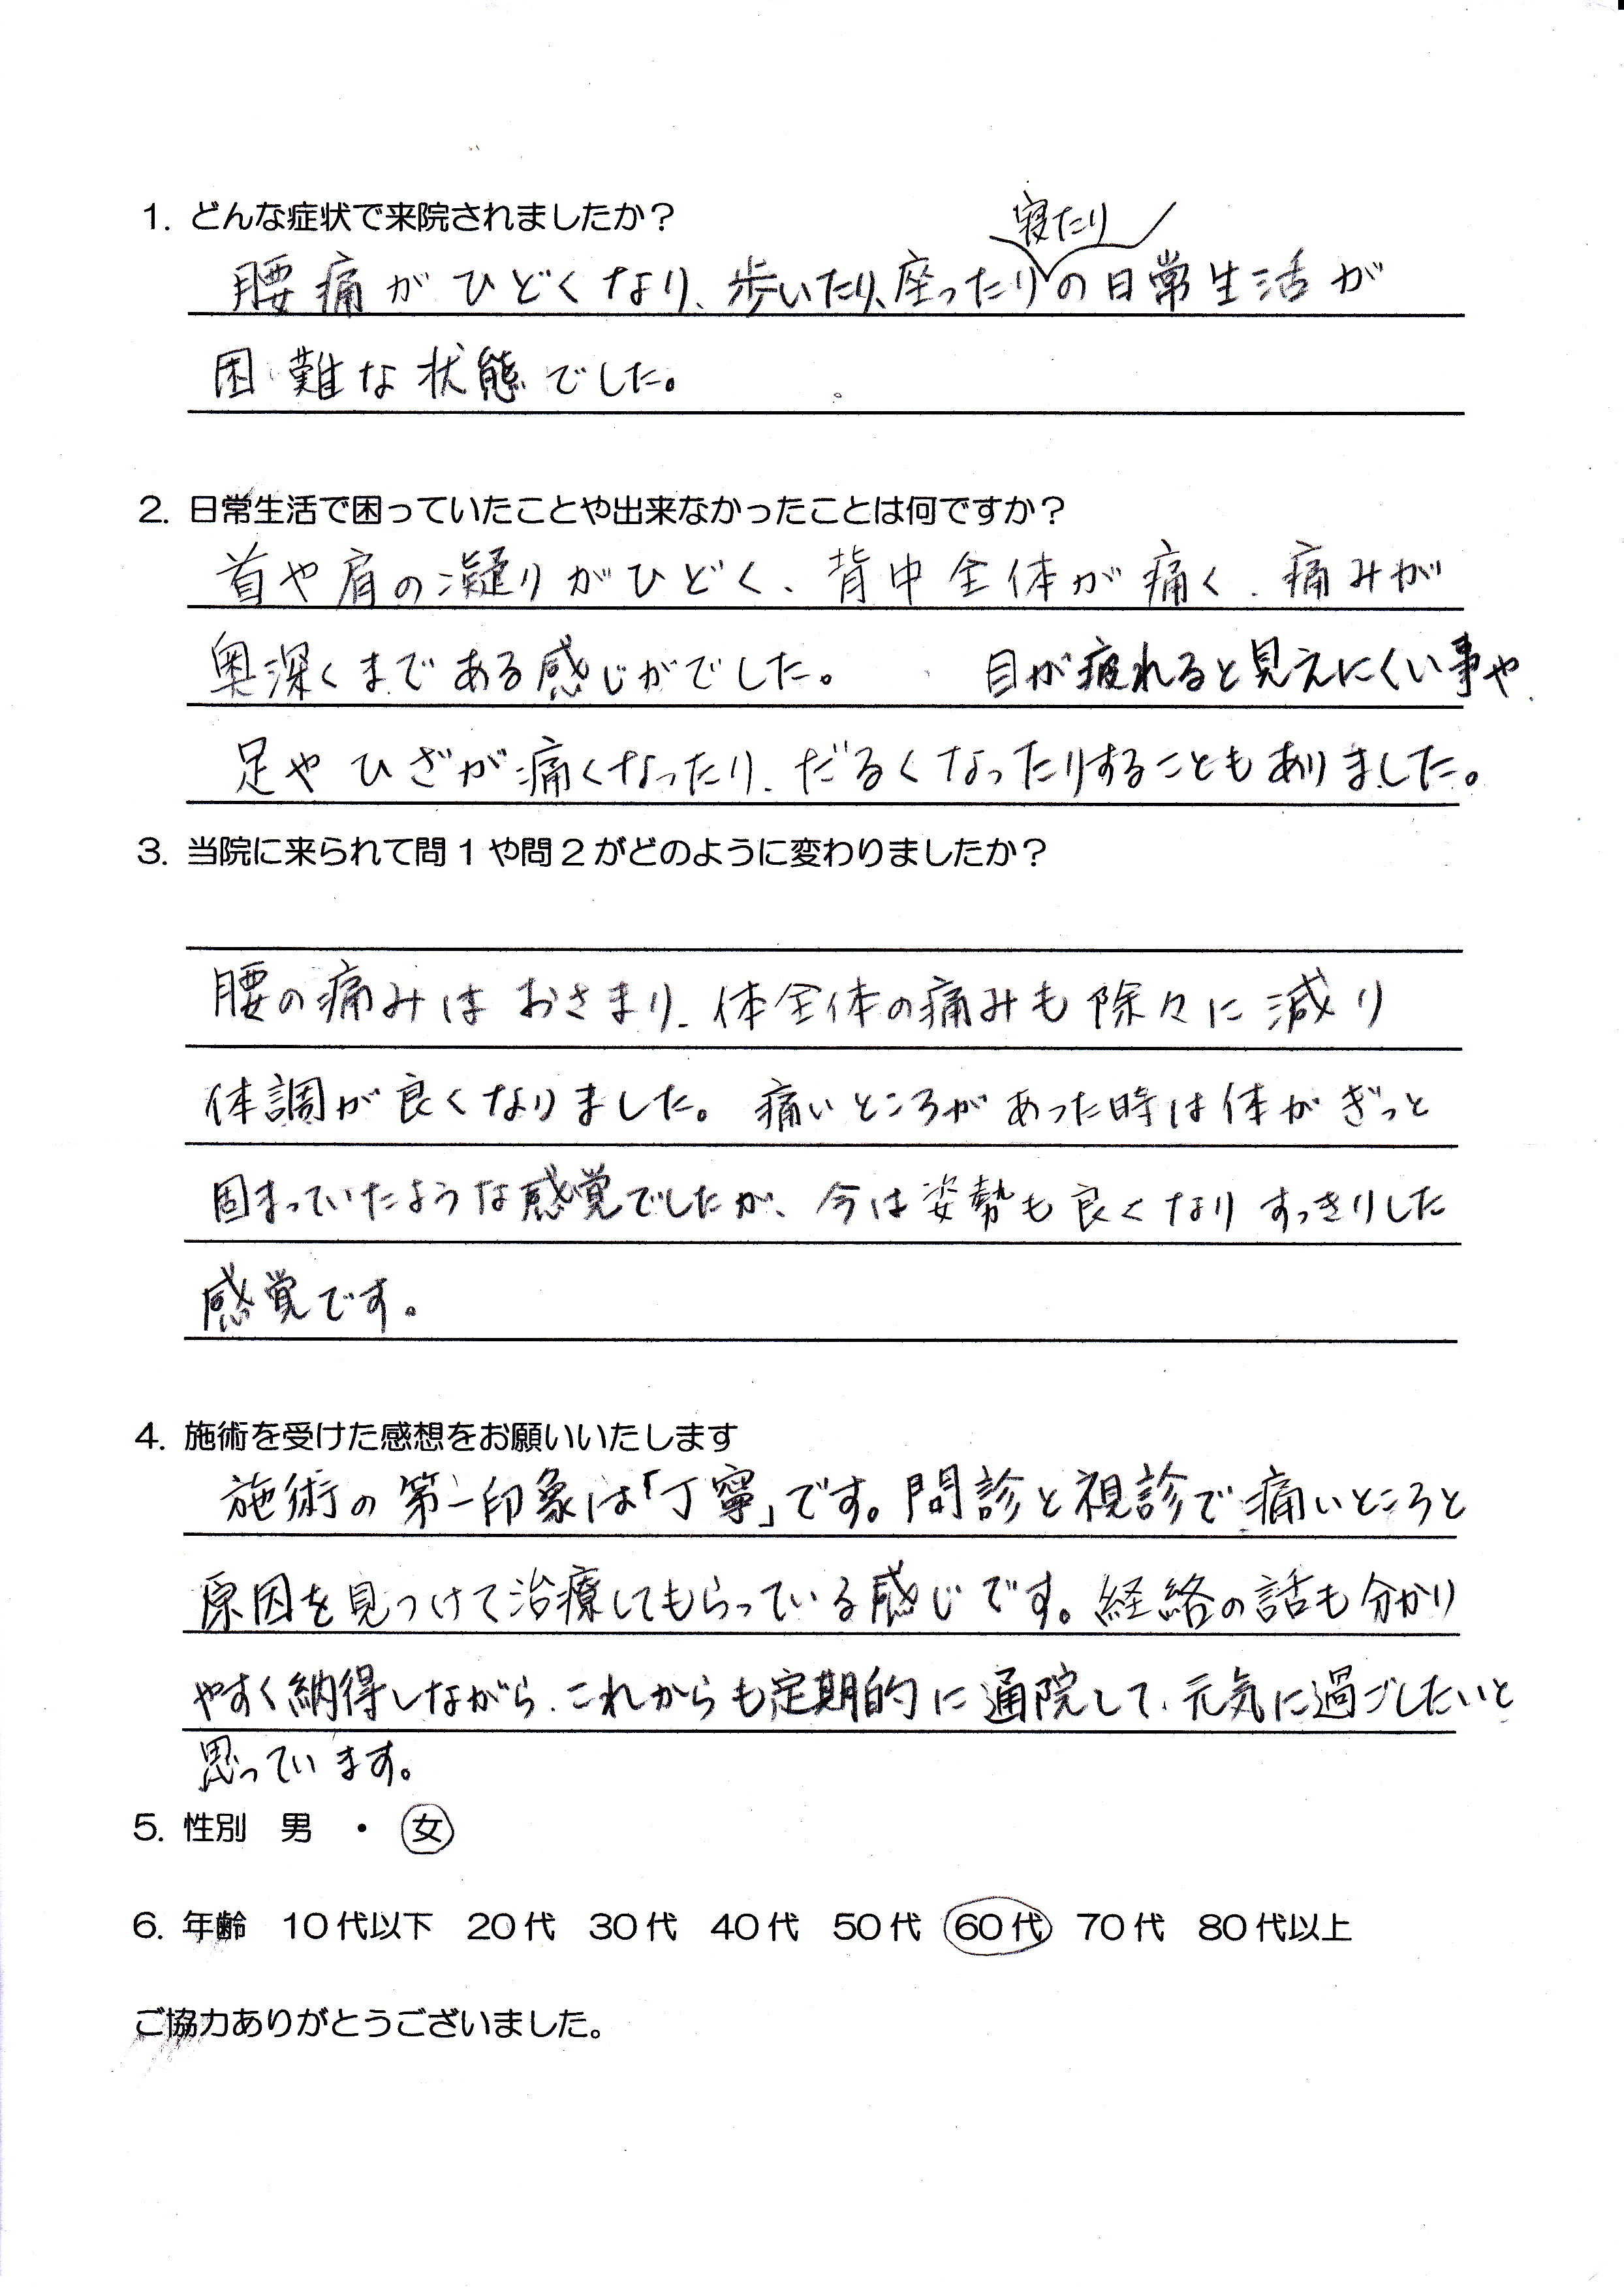 1. どんな症状で来院されましたか？
寝たり
腰痛がひどくなり、歩いたり、座ったりの日常生活が
困難な状態でした。
2. 日常生活で困っていたことや出来なかったことは何ですか？
首や肩の凝りがひどく、背中全体が痛く、痛みが
奥深くまである感じがでした。 目が疲れると見えにくい事や、
足やひざが痛くなったり、だるくなったりすることもありました。
3. 当院に来られて問１や問２がどのように変わりましたか？
腰の痛みはおさまり、体全体の痛みも除々に減り
体調が良くなりました。痛いところがあった時は体がぎっと
固まっていたような感覚でしたが、今は姿勢も良くなりすっきりした
感覚です。
4. 施術を受けた感想をお願いいたします
施術の第一印象は「丁寧」です。問診と視診で痛いところと
原因を見つけて治療してもらっている感じです。経絡の話も分かり
やすく納得しながら、これからも定期的に通院して、元気に過ごしたいと
思っています。
5. 性別 男 ・ 女
6. 年齢 10代以下 20代 30代 40代 50代 60代 70代 80代以上
ご協力ありがとうございました。